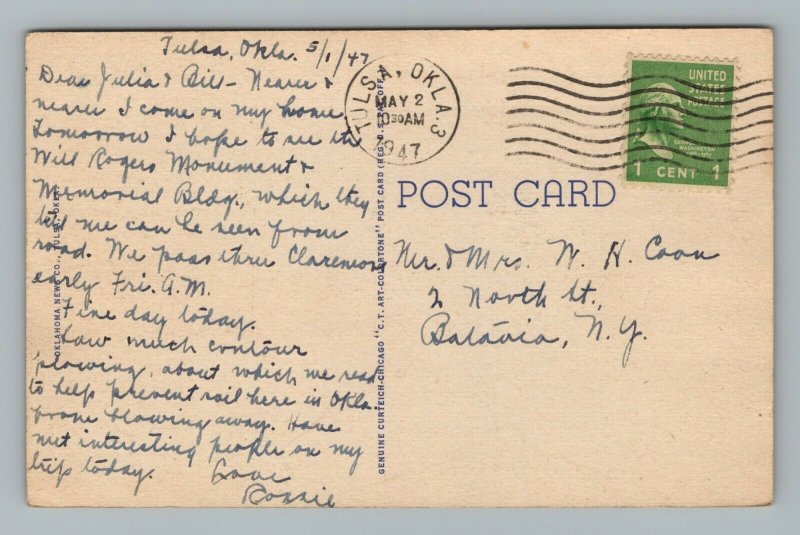 Tulsa, Okla. 5/1/47
Dear Julia & Bill - Nearer &
nearer I come on my home
Tomorrow I hope to see the
Will Rogers Monument &
Memorial Bldg., which they
tell me can be seen from
road. We pass thru Claremore
early Fri. A.M.
Fine day today.
Saw much contour
plowing, about which we read
to help prevent soil here in Okla.
from blowing away. Have
met interesting people on my
trip today. Love
TULSA, OKLA. 3
MAY 2
1030AM
1947
UNITED
STATES
POSTAGE
GEORGE
WASHINGTON
1 CENT 1
POST CARD
Mr. & Mrs. W. H. Coon
2 North St.,
Batavia, N.Y.
OKLAHOMA NEWS CO., TULSA, OKLA.
GENUINE CURTEICH-CHICAGO "C.T. ART-COLORTONE" POST CARD (REG. U.S. PAT. OFF.)